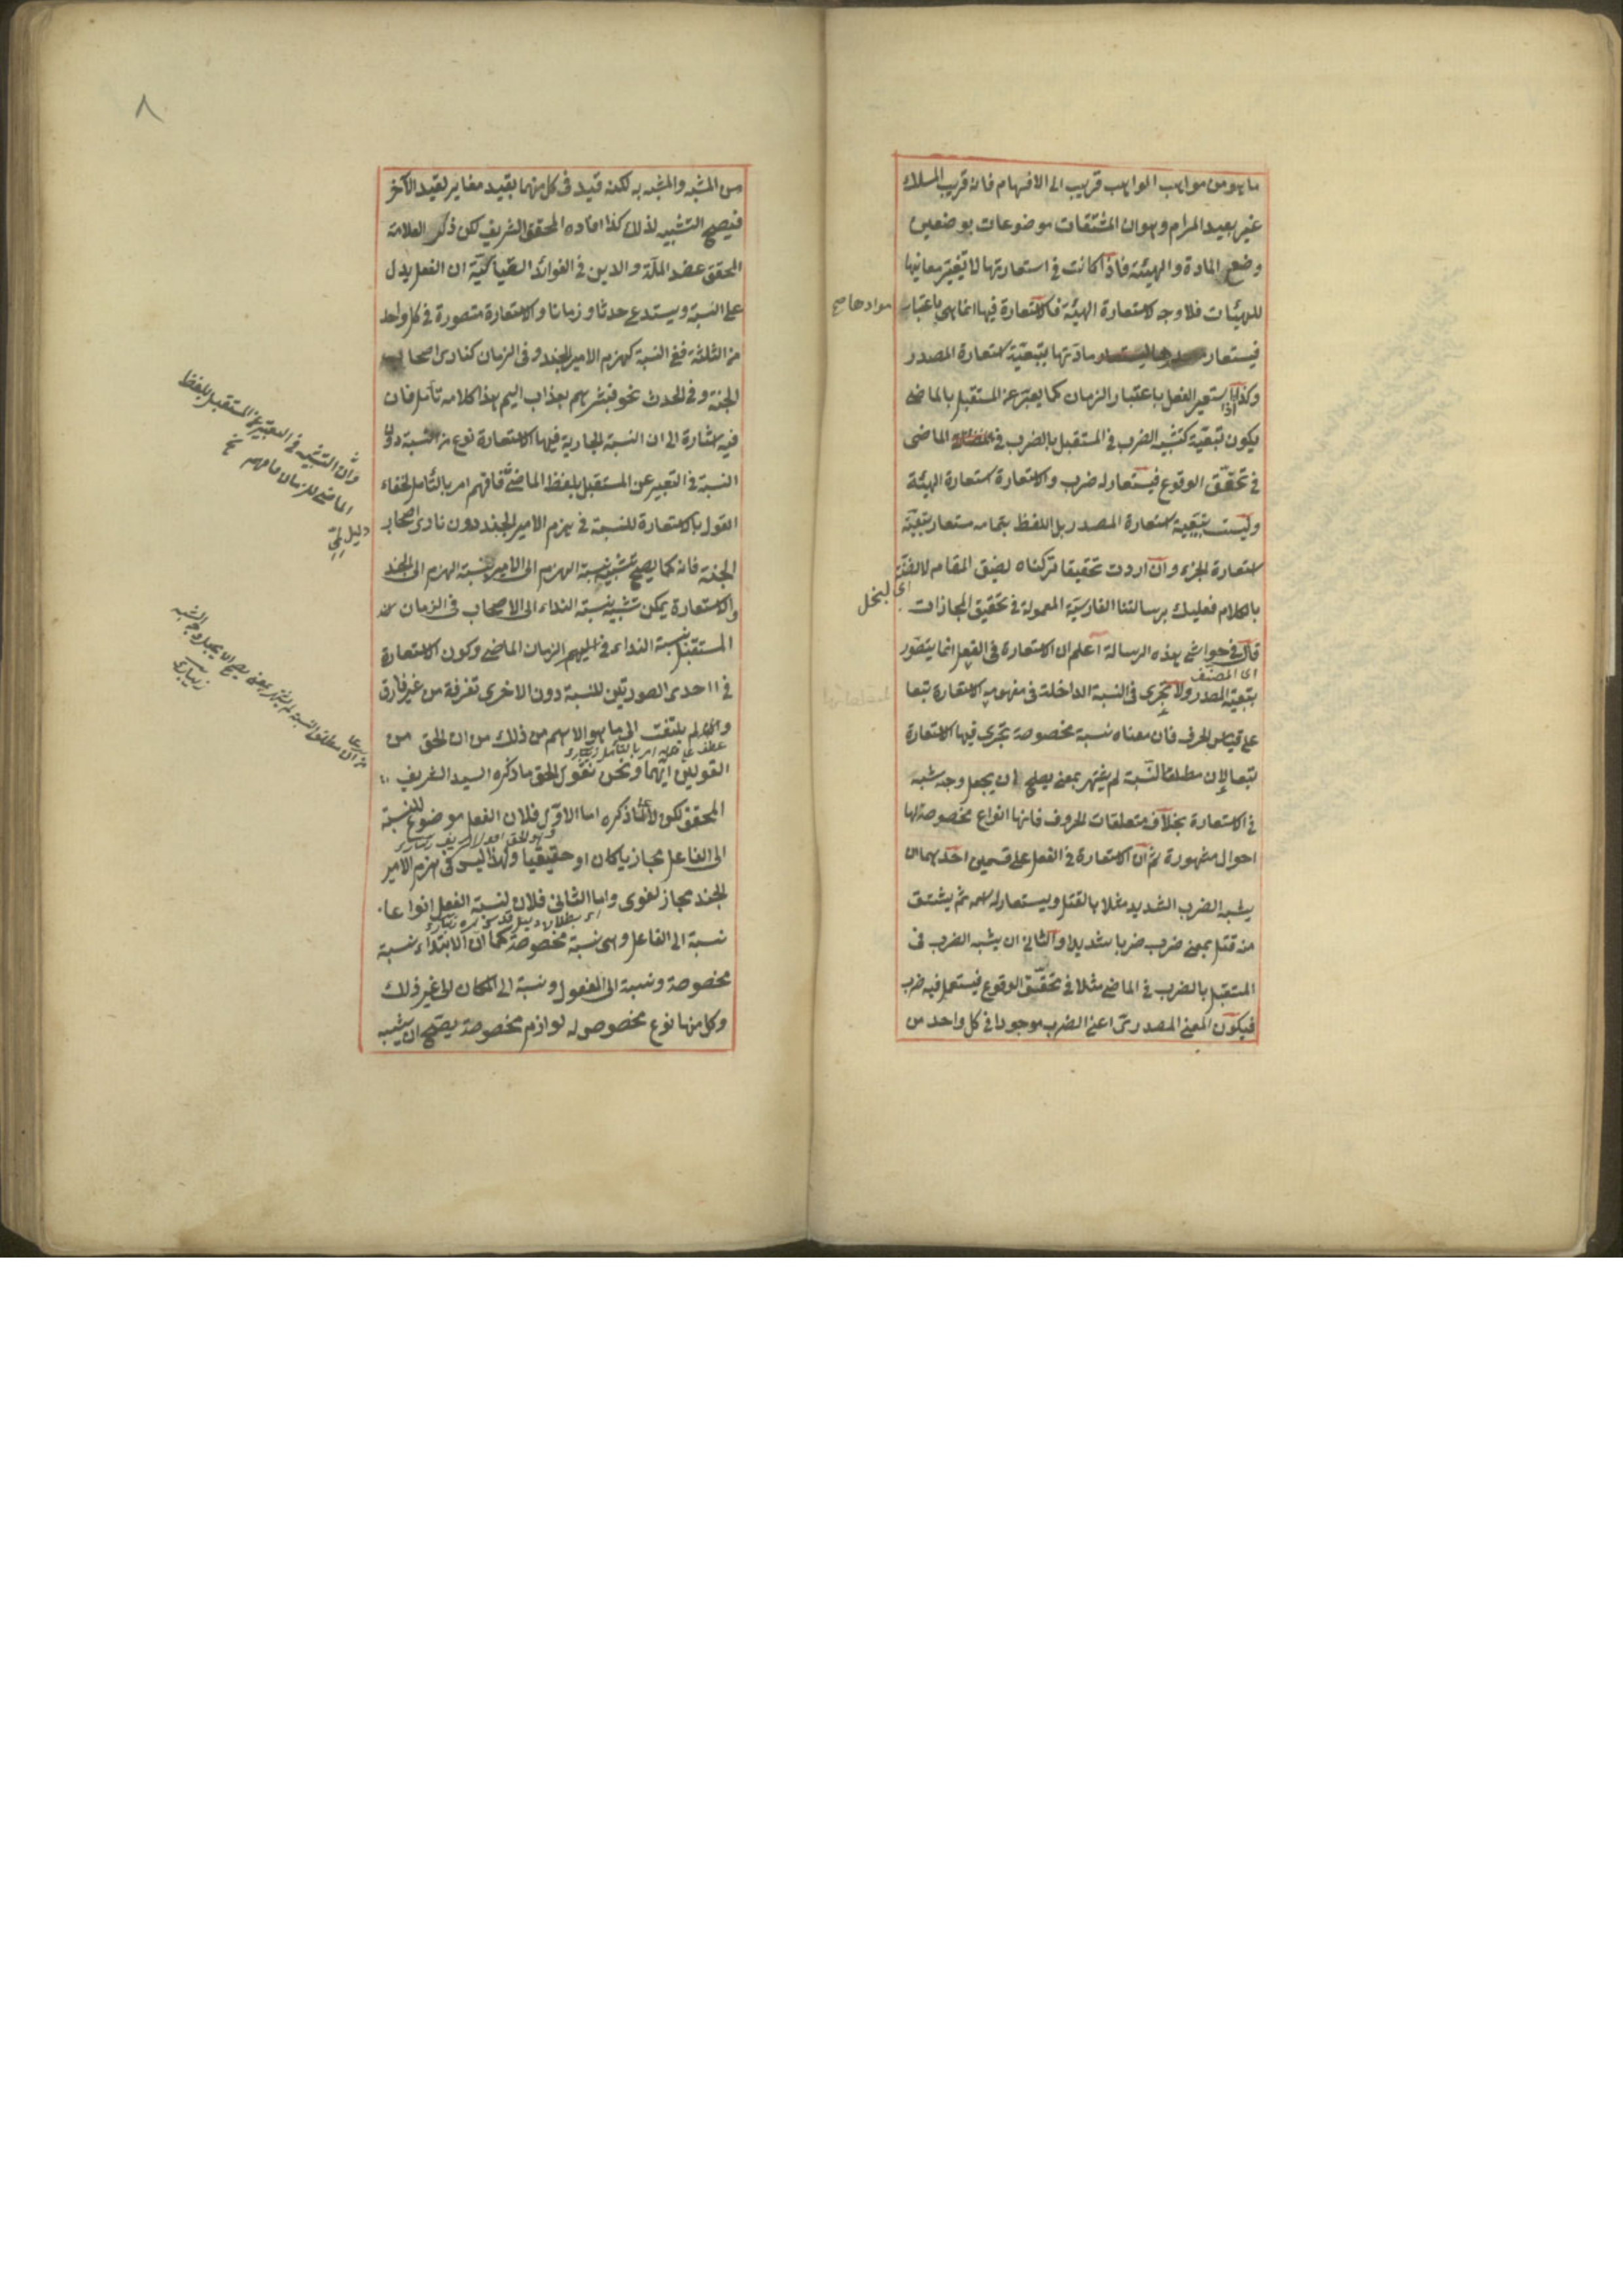 ما هو من مواهب الواهب قريب الى الافهام فانه قريب المسلك
غير بعيد المرام وهو ان المشتقات موضوعات بوضعين
وضع المادة والهيئة فاذا كانت في استعارتها لا تغير معانيها
للهيئات فلا وجه لاستعارة الهيئة فالاستعارة فيها انما هي باعتبار
موادها صح
فيستعار مادتها بتبعية استعارة المصدر
وكذا اذا استعير الفعل باعتبار الزمان كما يعبر عن المستقبل بالماضى
يكون تبعية كتشبيه الضرب في المستقبل بالضرب في الماضى
في تحقق الوقوع فيستعار له ضرب والاستعارة استعارة الهيئة
وليست بتبعية استعارة المصدر بل اللفظ بتمامه مستعار بتبعية
استعارة الجزء وان اردت تحقيقا تركناه لضيق المقام لا لضنّة
اى لبخل
بالكلام فعليك برسالتنا الفارسية المعمولة في تحقيق المجازات
قال في حواشى هذه الرسالة اعلم ان الاستعارة في الفعل انما يتصور
اى المصنف
بتبعية المصدر ولا تجرى في النسبة الداخلة في مفهومه الاستعارة تبعا
على قياس الحرف فان معناه نسبة مخصوصة تجرى فيها الاستعارة
تبعا لان مطلق النسبة لم يشتهر بمعنى يصلح ان يجعل وجه شبه
في الاستعارة بخلاف متعلقات الحروف فانها انواع مخصوصة لها
احوال مشهورة ثم ان الاستعارة في الفعل على قسمين احدهما ان
يشبه الضرب الشديد مثلا بالقتل ويستعار له اسمه ثم يشتق
منه قتل بمعنى ضرب ضربا شديدا والثانى ان يشبه الضرب في
المستقبل بالضرب في الماضى مثلا في تحقق الوقوع فيستعمل فيه ضرب
فيكون المعنى المصدرى اعنى الضرب موجودا في كل واحد من
٨
من المشبه والمشبه به لكنه قيد في كل منهما بقيد مغاير لقيد الآخر
فيصح التشبيه لذلك كذا افاده المحقق الشريف لكن ذكر العلامة
المحقق عضد الملة والدين في الفوائد الغياثية ان الفعل يدل
على النسبة ويستدعى حدثا وزمانا والاستعارة متصورة في كل واحد
من الثلثة ففي النسبة كهزم الامير الجند وفي الزمان كنادى اصحاب
الجنة وفي الحدث نحو فبشرهم بعذاب اليم هذا كلامه تأمل فان
فيه اشارة الى ان النسبة الجارية فيها الاستعارة نوع من النسبة دون
النسبة في التعبير عن المستقبل بلفظ الماضى فافهم امر بالتأمل لخفاء
القول بالاستعارة للنسبة في هزم الامير الجند دون نادى اصحاب
الجنة فانه كما يصح تشبيه نسبة الهزم الى الامير بنسبة الهزم الى الجند
والاستعارة يمكن تشبيه نسبة النداء الى الاصحاب في الزمان
المستقبل بنسبة النداء اليهم في الزمان الماضى وكون الاستعارة
في احدى الصورتين للنسبة دون الاخرى تفرقة من غير فارق
وانه لم يلتفت الى ما هو الاهم من ذلك من ان الحق من
عطف على قوله امر بالتأمل زيبارى
القولين ايهما ونحن نقول الحق ما ذكره السيد الشريف
المحقق لكن لا لما ذكره اما الاول فلان الفعل موضوع للنسبة
وهو الحق قول الشريف زيبارى
الى الفاعل مجازيا كان او حقيقيا ولهذا ليس في هزم الامير
الجند مجاز لغوى واما الثانى فلان لنسبة الفعل انواعا
نسبة الى الفاعل وهى نسبة مخصوصة كما ان الابتداء نسبة
مخصوصة ونسبة الى المفعول ونسبة الى المكان الى غير ذلك
وكل منها نوع مخصوص له لوازم مخصوصة يصح ان يشبه
وان التشبيه في التعبير عن المستقبل بلفظ
الماضى للزمان فافهم نخ
دليل لمى
زيبارى